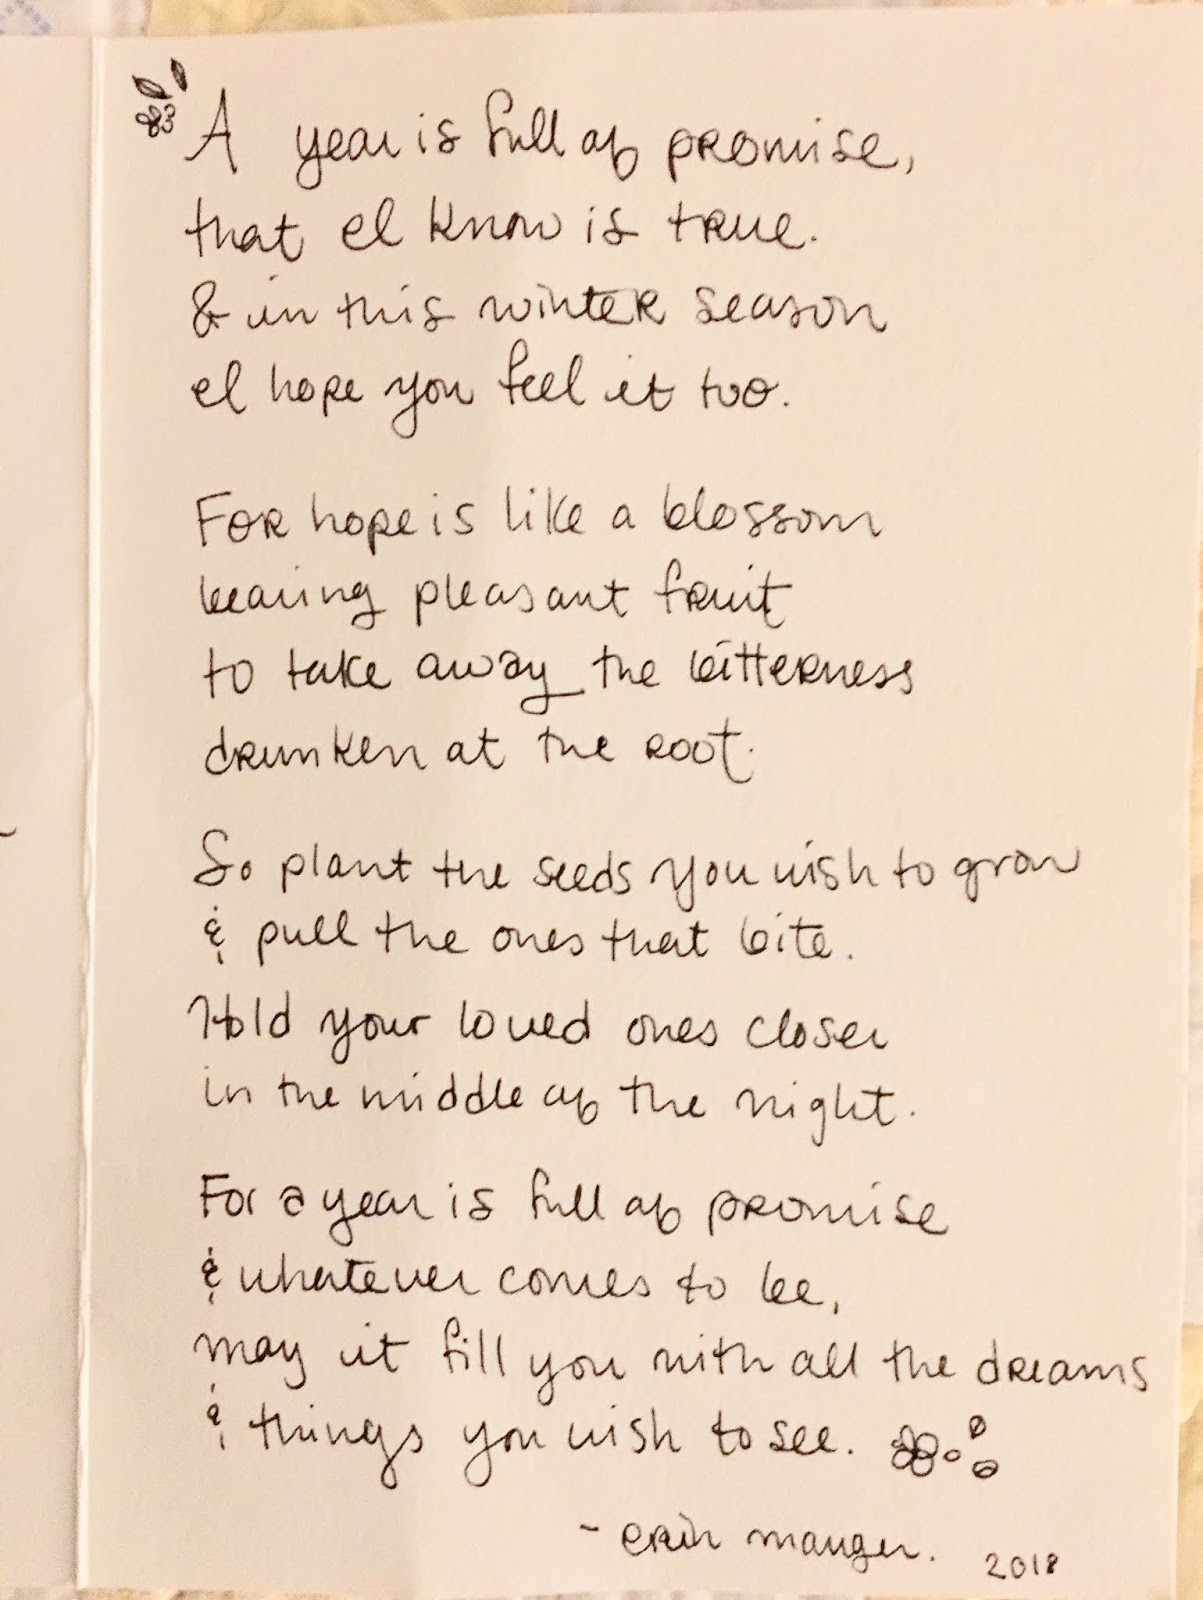 A year is full of promise,
that I know is true.
& in this winter season
I hope you feel it too.
For hope is like a blossom
bearing pleasant fruit
to take away the bitterness
drunken at the root.
So plant the seeds you wish to grow
& pull the ones that bite.
Hold your loved ones closer
in the middle of the night.
For a year is full of promise
& whatever comes to be,
may it fill you with all the dreams
& things you wish to see.
- erin mauger.
2018